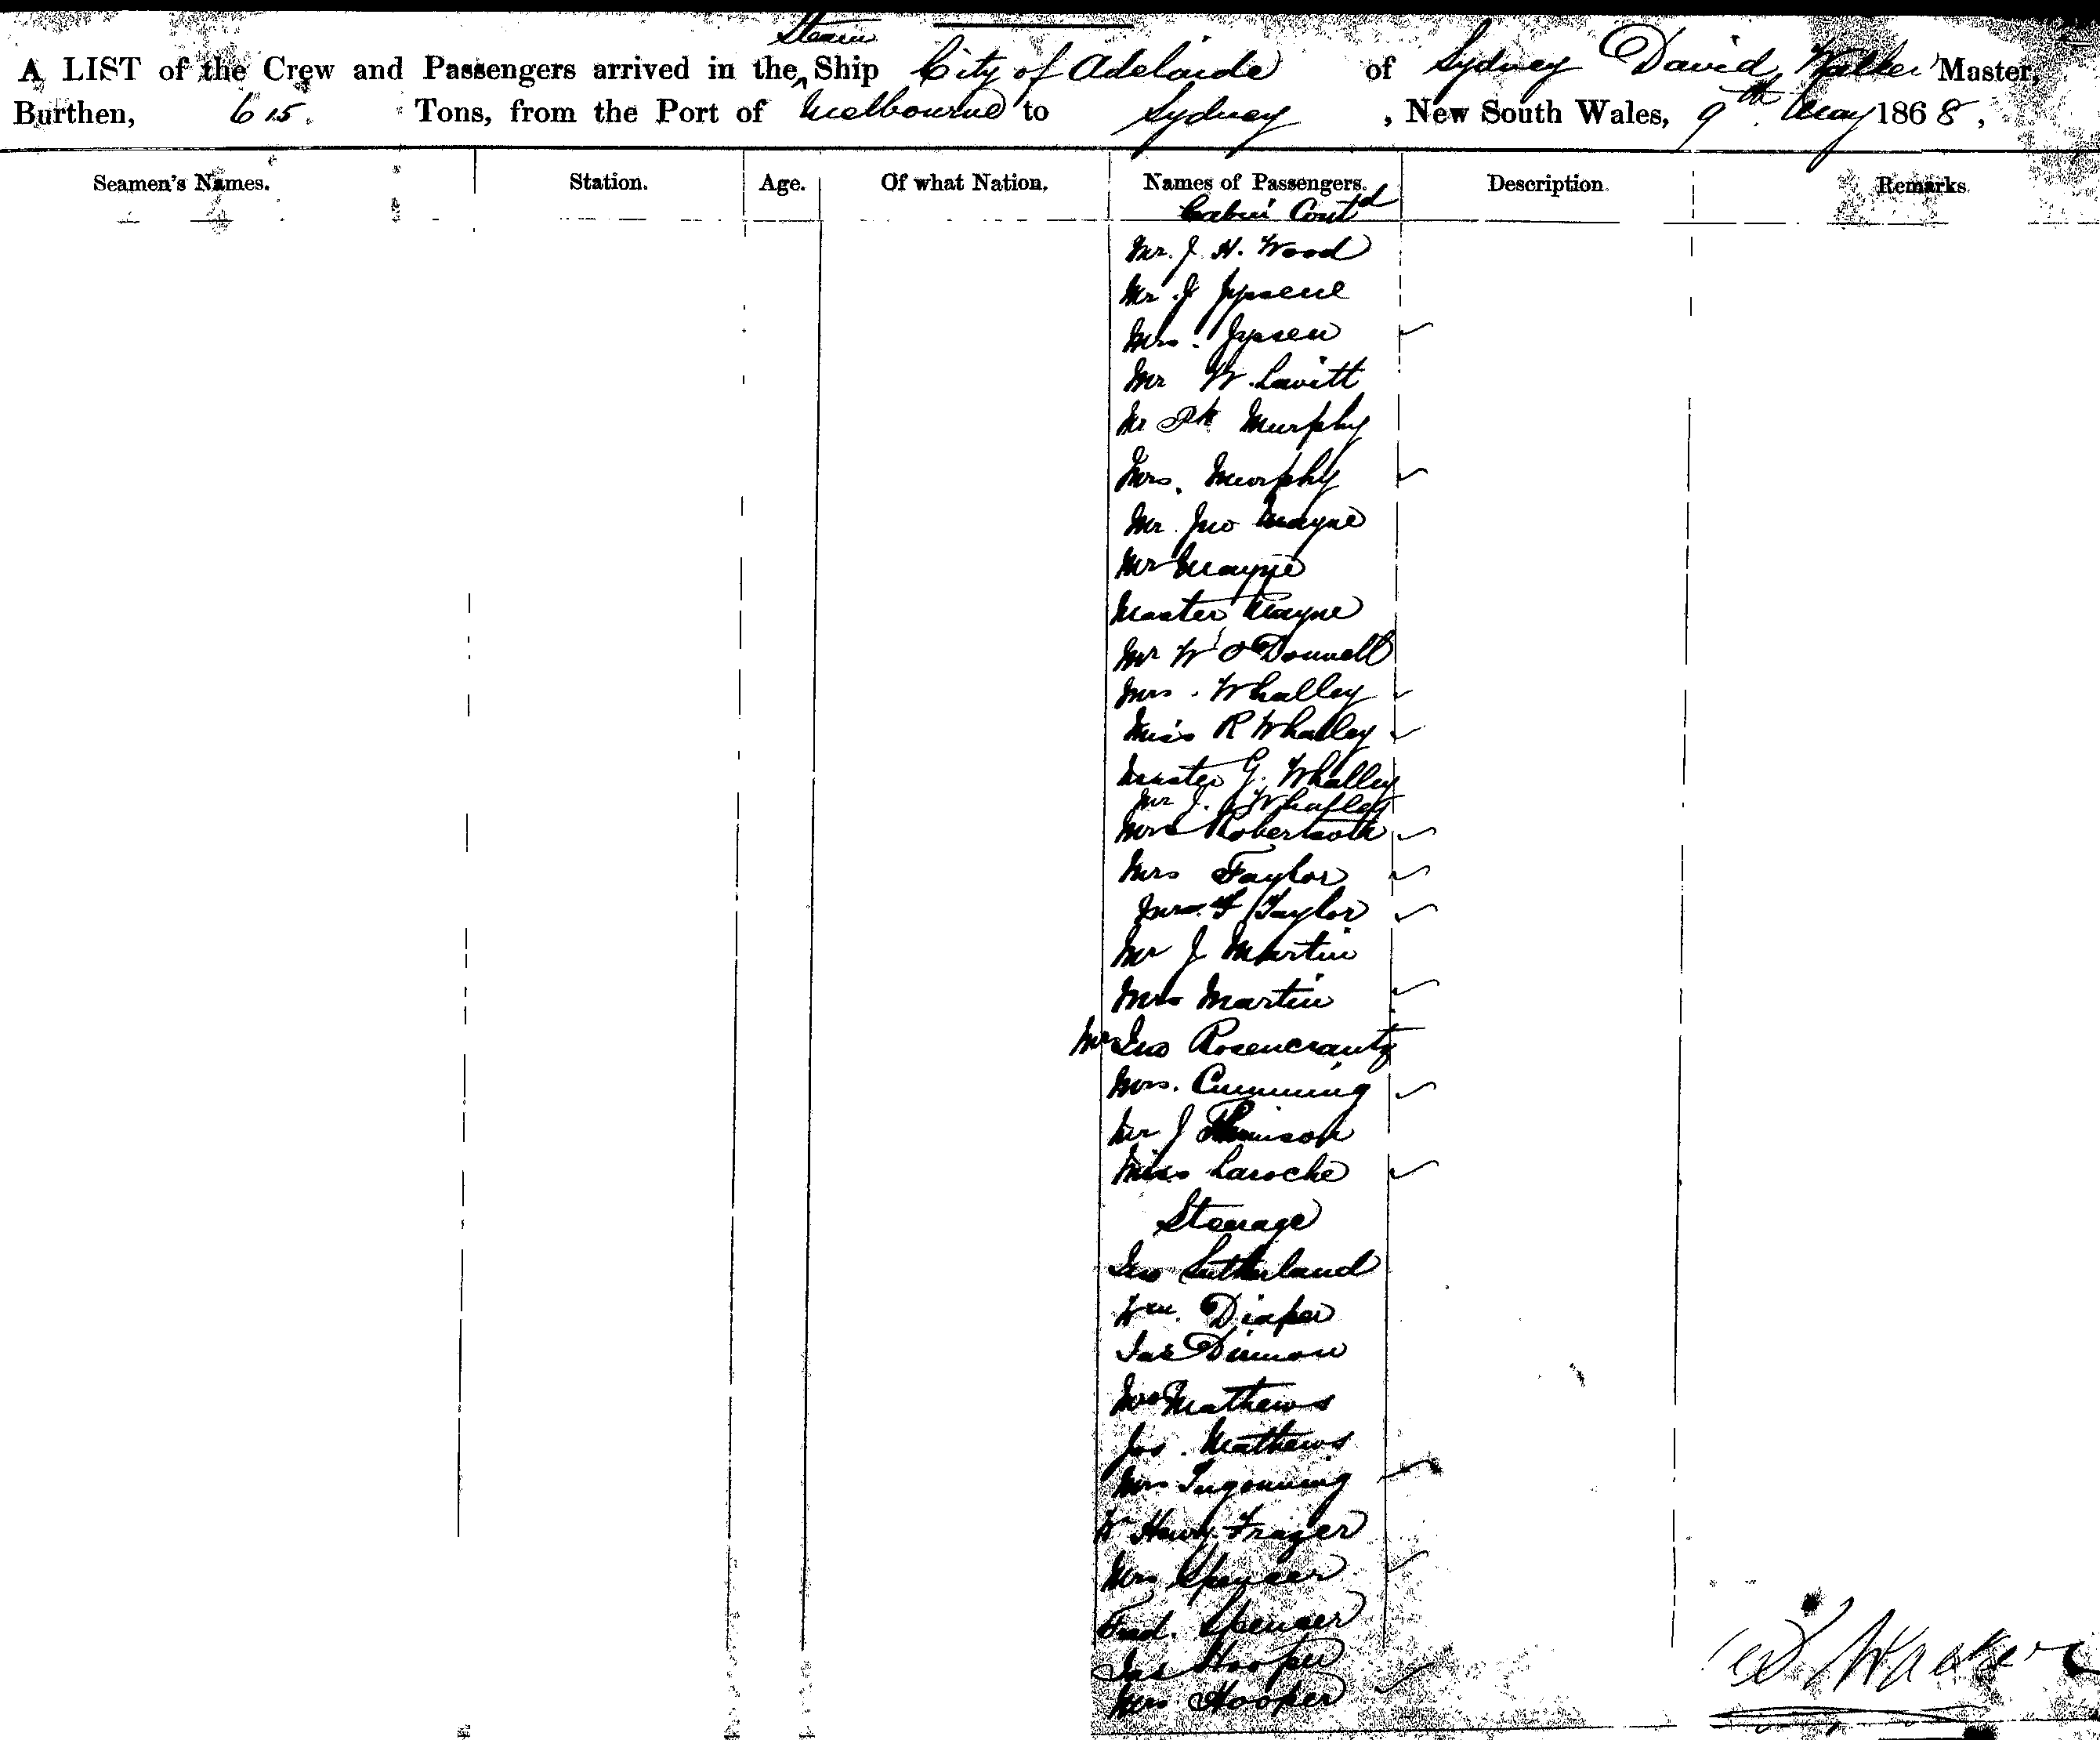 Steam
A LIST of the Crew and Passengers arrived in the Ship City of Adelaide of Sydney David Walker Master,
Burthen, 615. Tons, from the Port of Melbourne to Sydney, New South Wales, 9th May 1868,
Seamen's Names. Station. Age. Of what Nation. Names of Passengers. Description. Remarks.
Cabin Contd
Mr. J. H. Wood
Mr J
Mrs.
Mr W. Lavitt
Mr Pk Murphy
Mrs. Murphy
Mr Jno Mayne
Mr Mayne
Master Mayne
Mr W O'Donnell
Mrs. Whalley
Miss R Whalley
Master G. Whalley
Mr J. Whalley
Mrs Robertson
Mrs Taylor
Mrs. F Taylor
Mr J Martin
Mrs Martin
Mr Rosencrantz
Mrs. Cumming
Mr J
Miss Laroche
Steerage
Sutherland
Wm. Draper
Jas
Mathews
Jos. Mathews
Mrs
Henry Frazer
Mrs Spencer
Fred. Spencer
Jas Hooper
Mrs Hooper
D. Walker